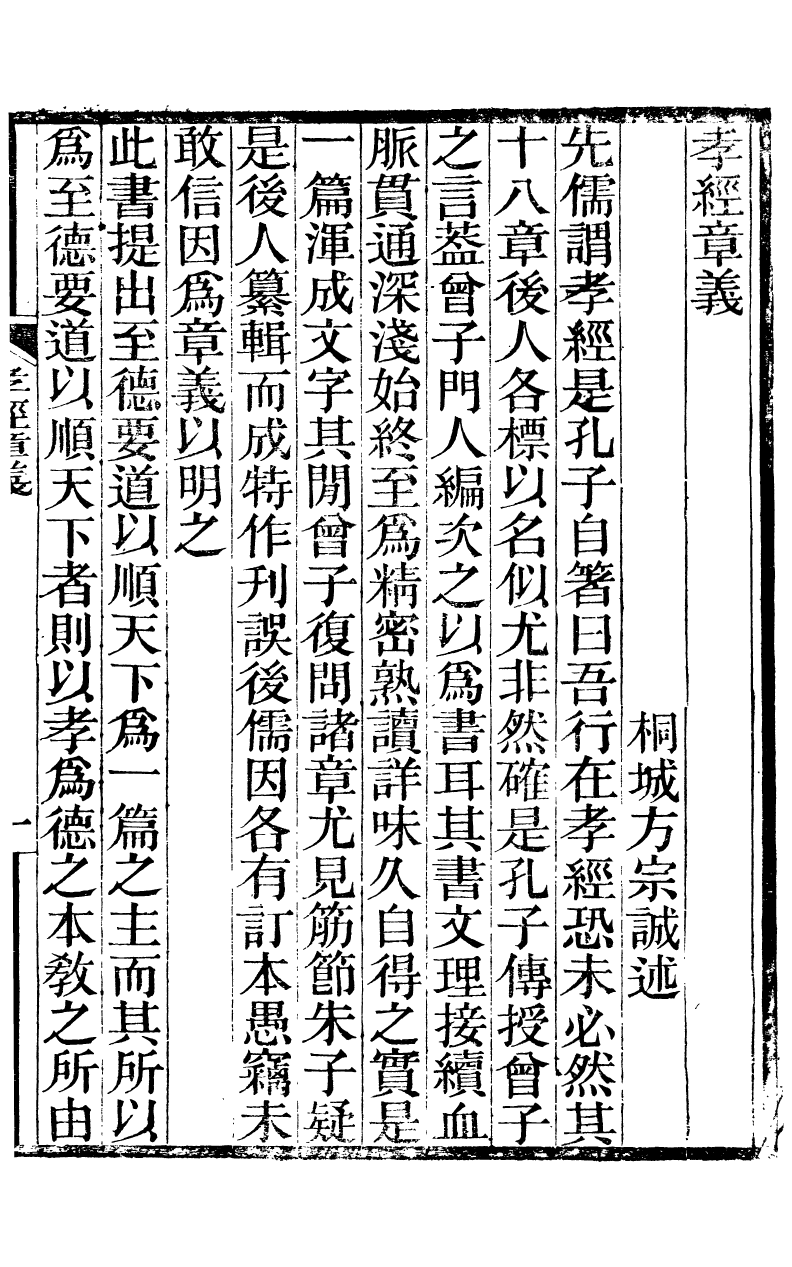 孝經章義
桐城方宗誠述
先儒謂孝經是孔子自箸曰吾行在孝經恐未必然其
十八章後人各標以名似尤非然確是孔子傳授曾子
之言葢曾子門人編次之以爲書耳其書文理接續血
脈貫通深淺始終至爲精密熟讀詳味久自得之實是
一篇渾成文字其閒曾子復問諸章尤見筋節朱子疑
是後人纂輯而成特作刊誤後儒因各有訂本愚竊未
敢信因爲章義以明之
此書提出至德要道以順天下爲一篇之主而其所以
爲至德要道以順天下者則以孝爲德之本敎之所由
孝經章義
一